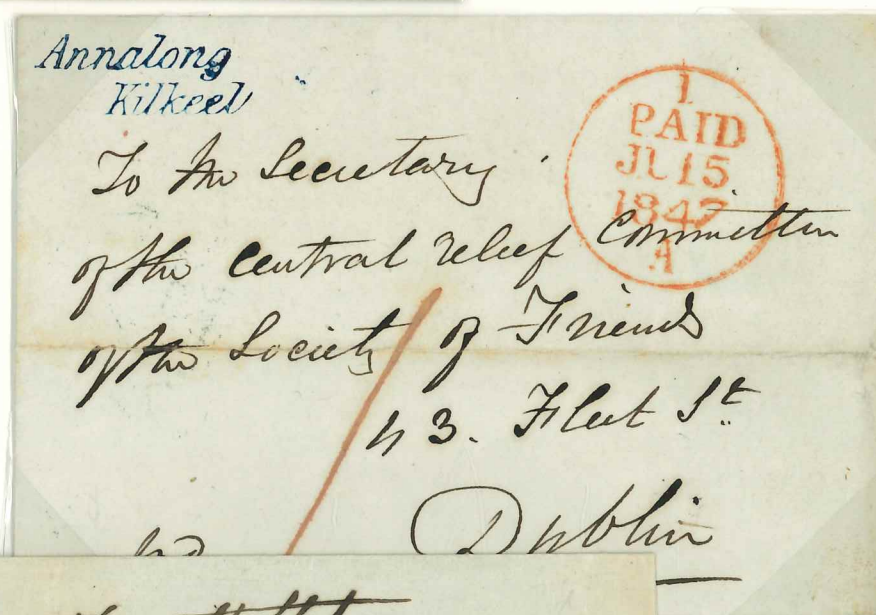 Annalong
Kilkeel
1
PAID
JU 15
1847
A
To the Secretary
of the Central relief Committee
of the Society of Friends
43. Fleet St
Dublin